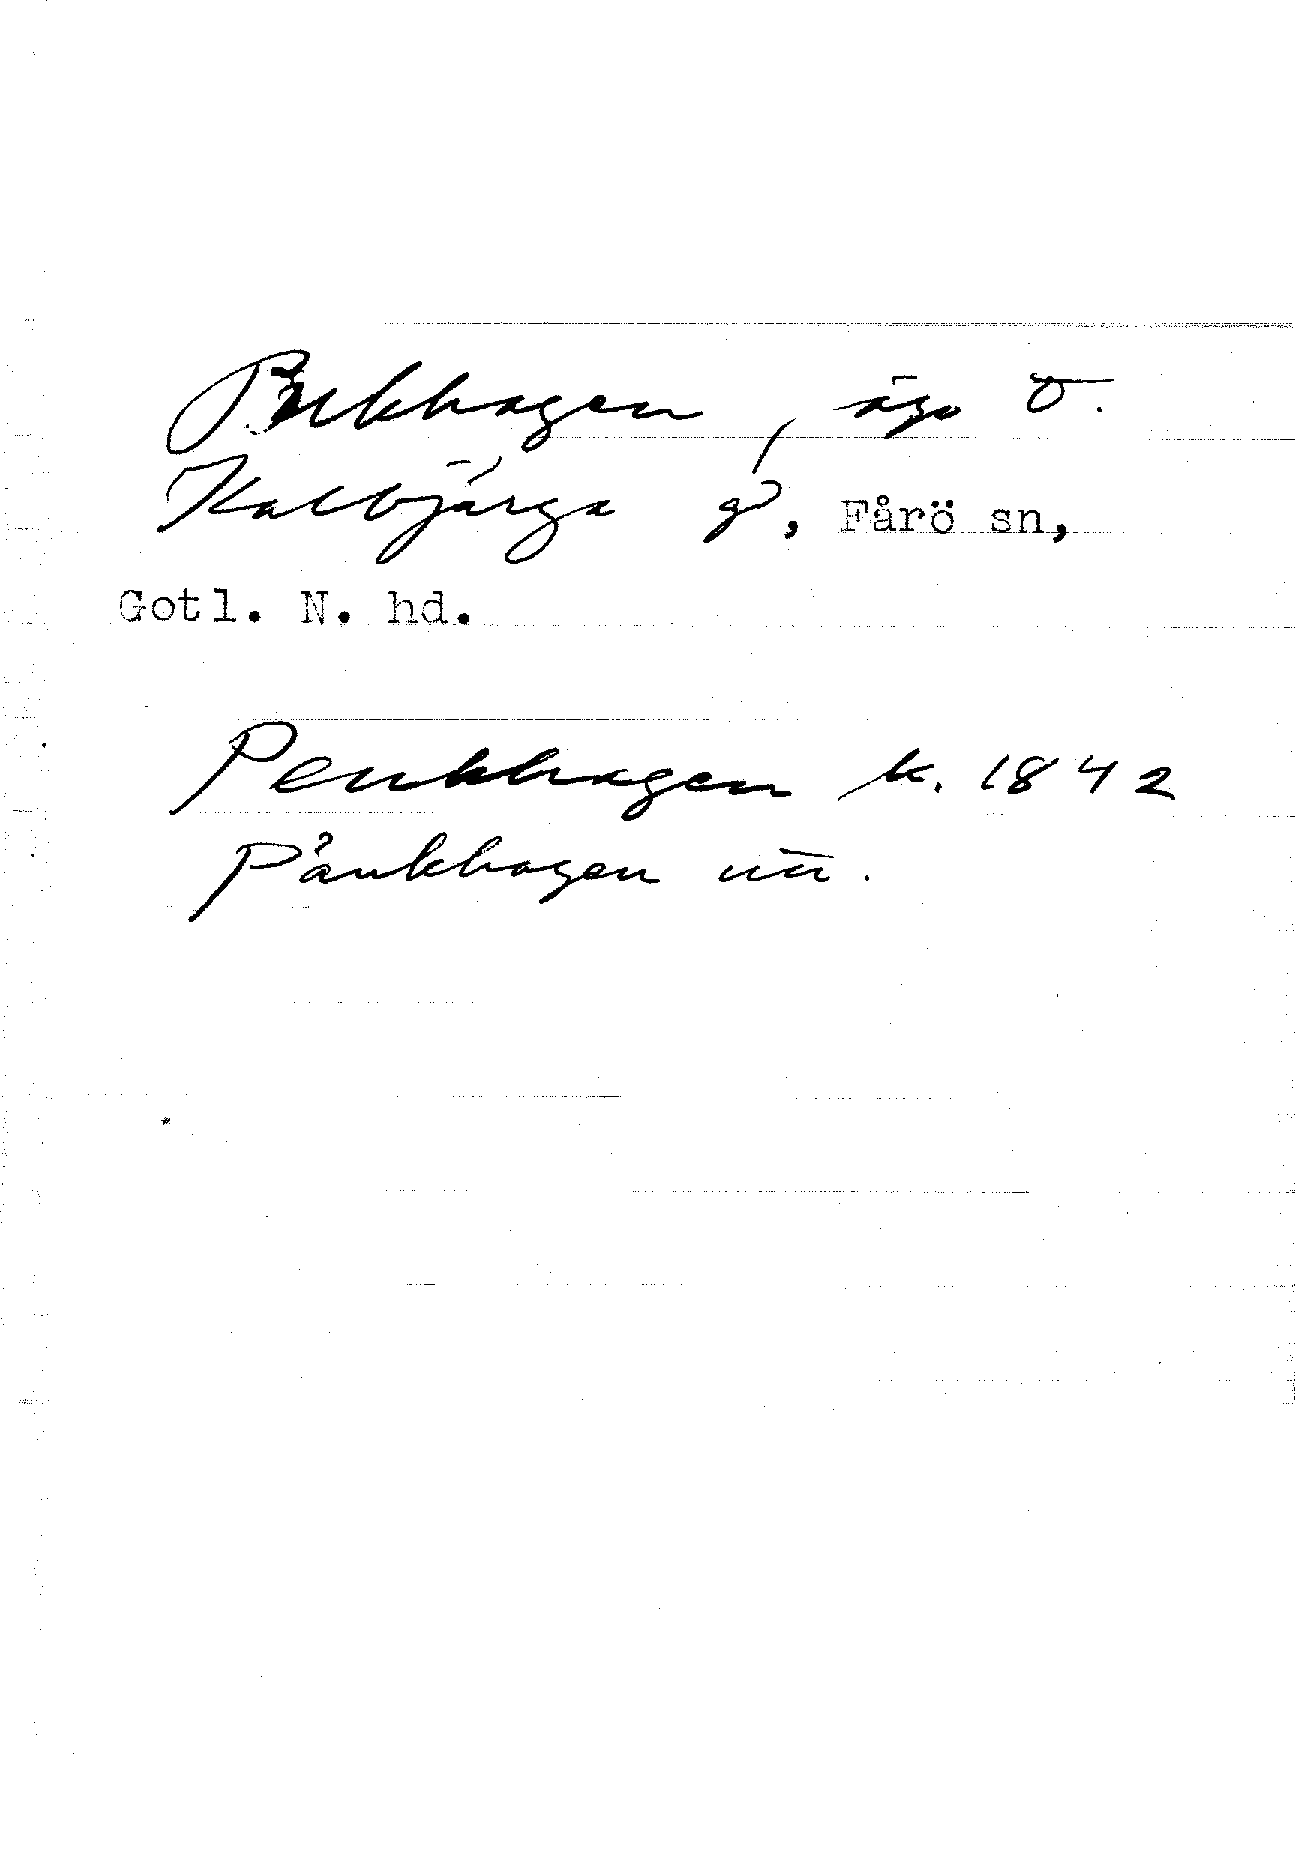 Pänkhagen, ägo Ö.
Kalbjärga gd, Fårö sn,
Gotl. N. hd.
Penkhagen k. 1842
Pånkhagen